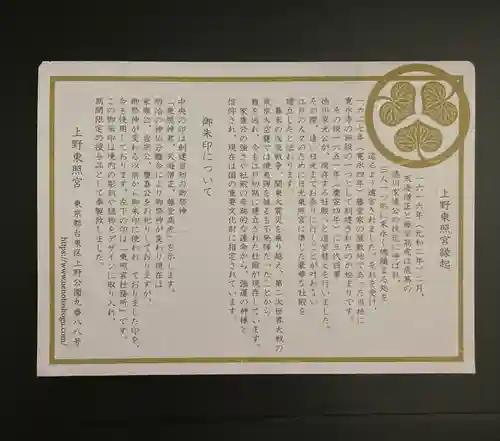 上野東照宮縁起
一六一六年(元和二年)二月、
天海僧正と藤堂高虎は危篤の
徳川家康公の枕元に呼ばれ、
三人一つ処に末永く魂鎮まる処を
造るよう遺言されました。それを受け、
一六二七年(寛永四年)藤堂家の屋敷地であった当地に
寛永寺の伽藍の一つとして創建されたのが始まりです。
その後一六五一年(慶安四年)に三代将軍
徳川家光公が、現存する社殿へと造営替えを行いました。
その際、遠い日光までお参りに行くことが叶わない
江戸の人々のために日光東照宮に準じた豪華な社殿を
建立したと伝わります。
幕末の上野戦争、関東大震災を乗り越え、第二次世界大戦の
東京大空襲では焼夷弾を受けるも不発弾だったことから、
難を逃れ、今も江戸初期に建立された社殿が現存しています。
家康公の強さや社殿の奇跡的な運命から、強運の神様と
信仰され、現在は国の重要文化財に指定されています。
御朱印について
中央の印は創建当初の御祭神
「東照神君、天海僧正、藤堂高虎」を示します。
明治の神仏分離令により御祭神が変わり現在は
家康公、吉宗公、慶喜公をお祀りしておりますが、
御祭神が変わる以前から御朱印に使われておりました印を、
今も使用しております。左下の印は「東照宮社務所」です。
この御朱印は境内の彫刻や植物をデザインに取り入れ、
期間限定の授与品として奉製致しました。
上野東照宮 東京都台東区上野公園九番八八号
https://www.uenotoshogu.com/